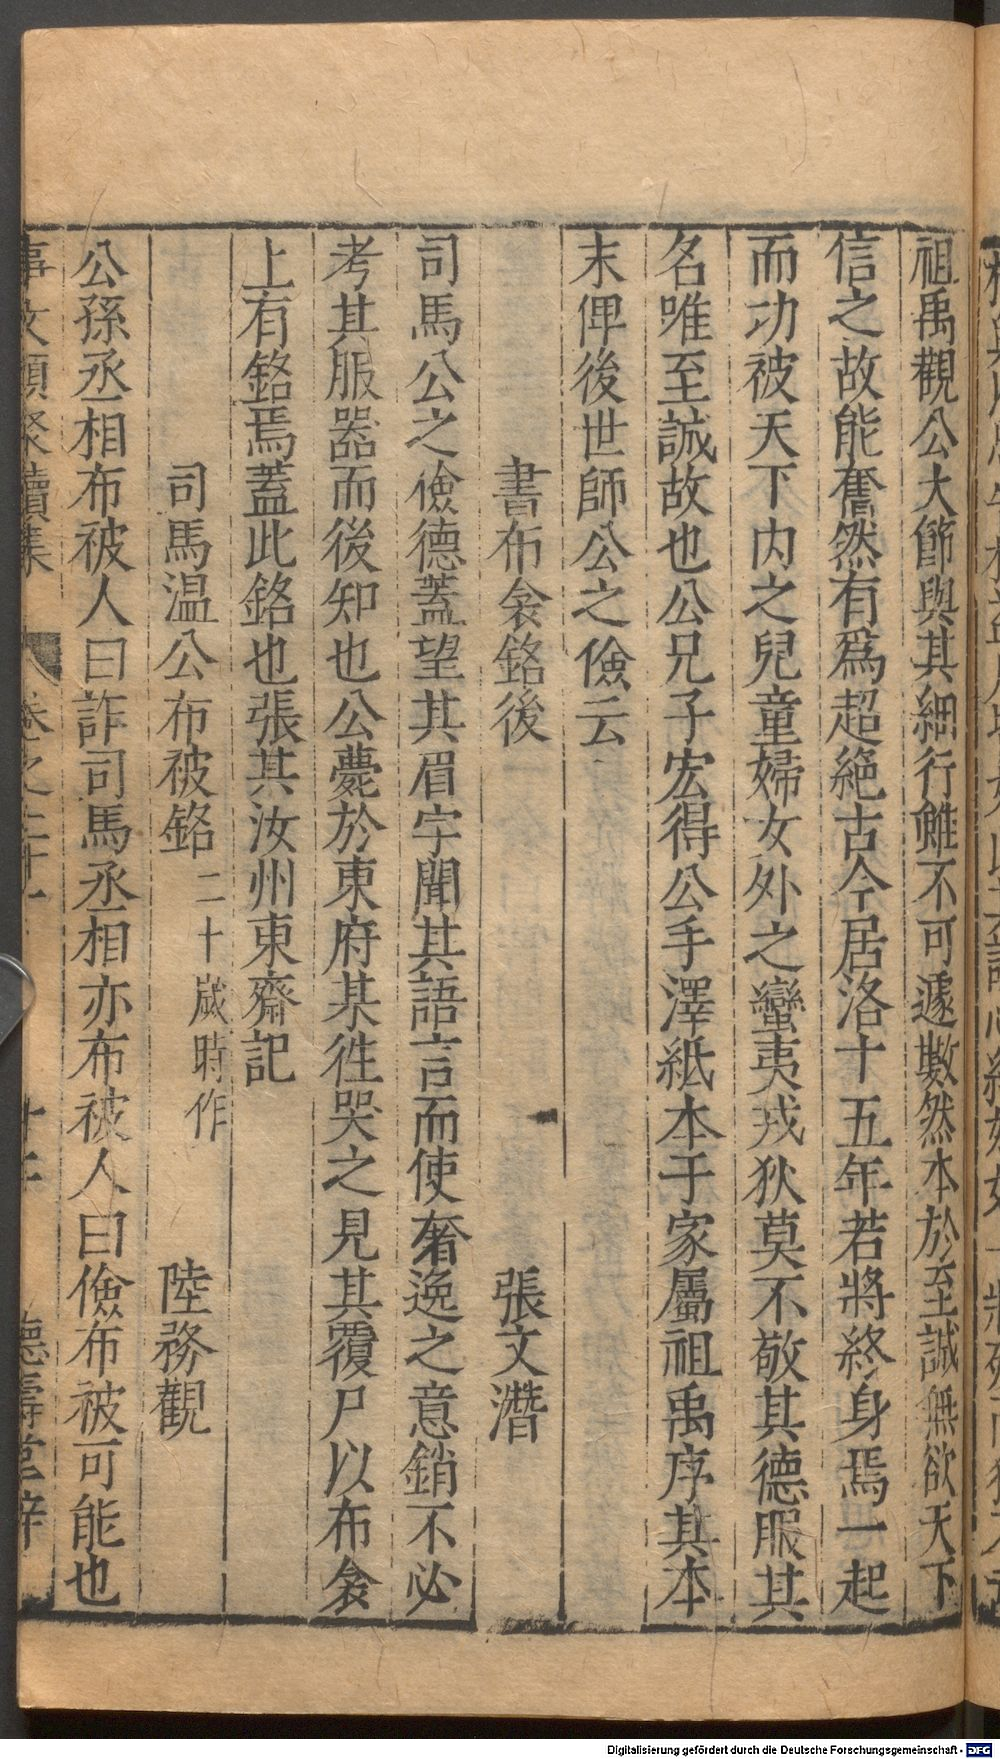 祖禹觀公大節與其細行雖不可遽數然本於至誠無欲天下
信之故能奮然有爲超絶古今居洛十五年若將終身焉一起
而功被天下内之兒童婦女外之蠻夷戎狄莫不敬其德服其
名唯至誠故也公兄子宏得公手澤紙本于家屬祖禹序其本
末俾後世師公之儉云
書布衾銘後 張文潛
司馬公之儉德蓋望其眉宇聞其語言而使奢逸之意銷不必
考其服器而後知也公薨於東府某徃哭之見其覆尸以布衾
上有銘焉蓋此銘也張某汝州東齋記
司馬温公布被銘 二十歲時作 陸務觀
公孫丞相布被人曰詐司馬丞相亦布被人曰儉布被可能也
事文類聚續集 卷之二十一 十二 德壽堂梓
Digitalisierung gefördert durch die Deutsche Forschungsgemeinschaft - DFG